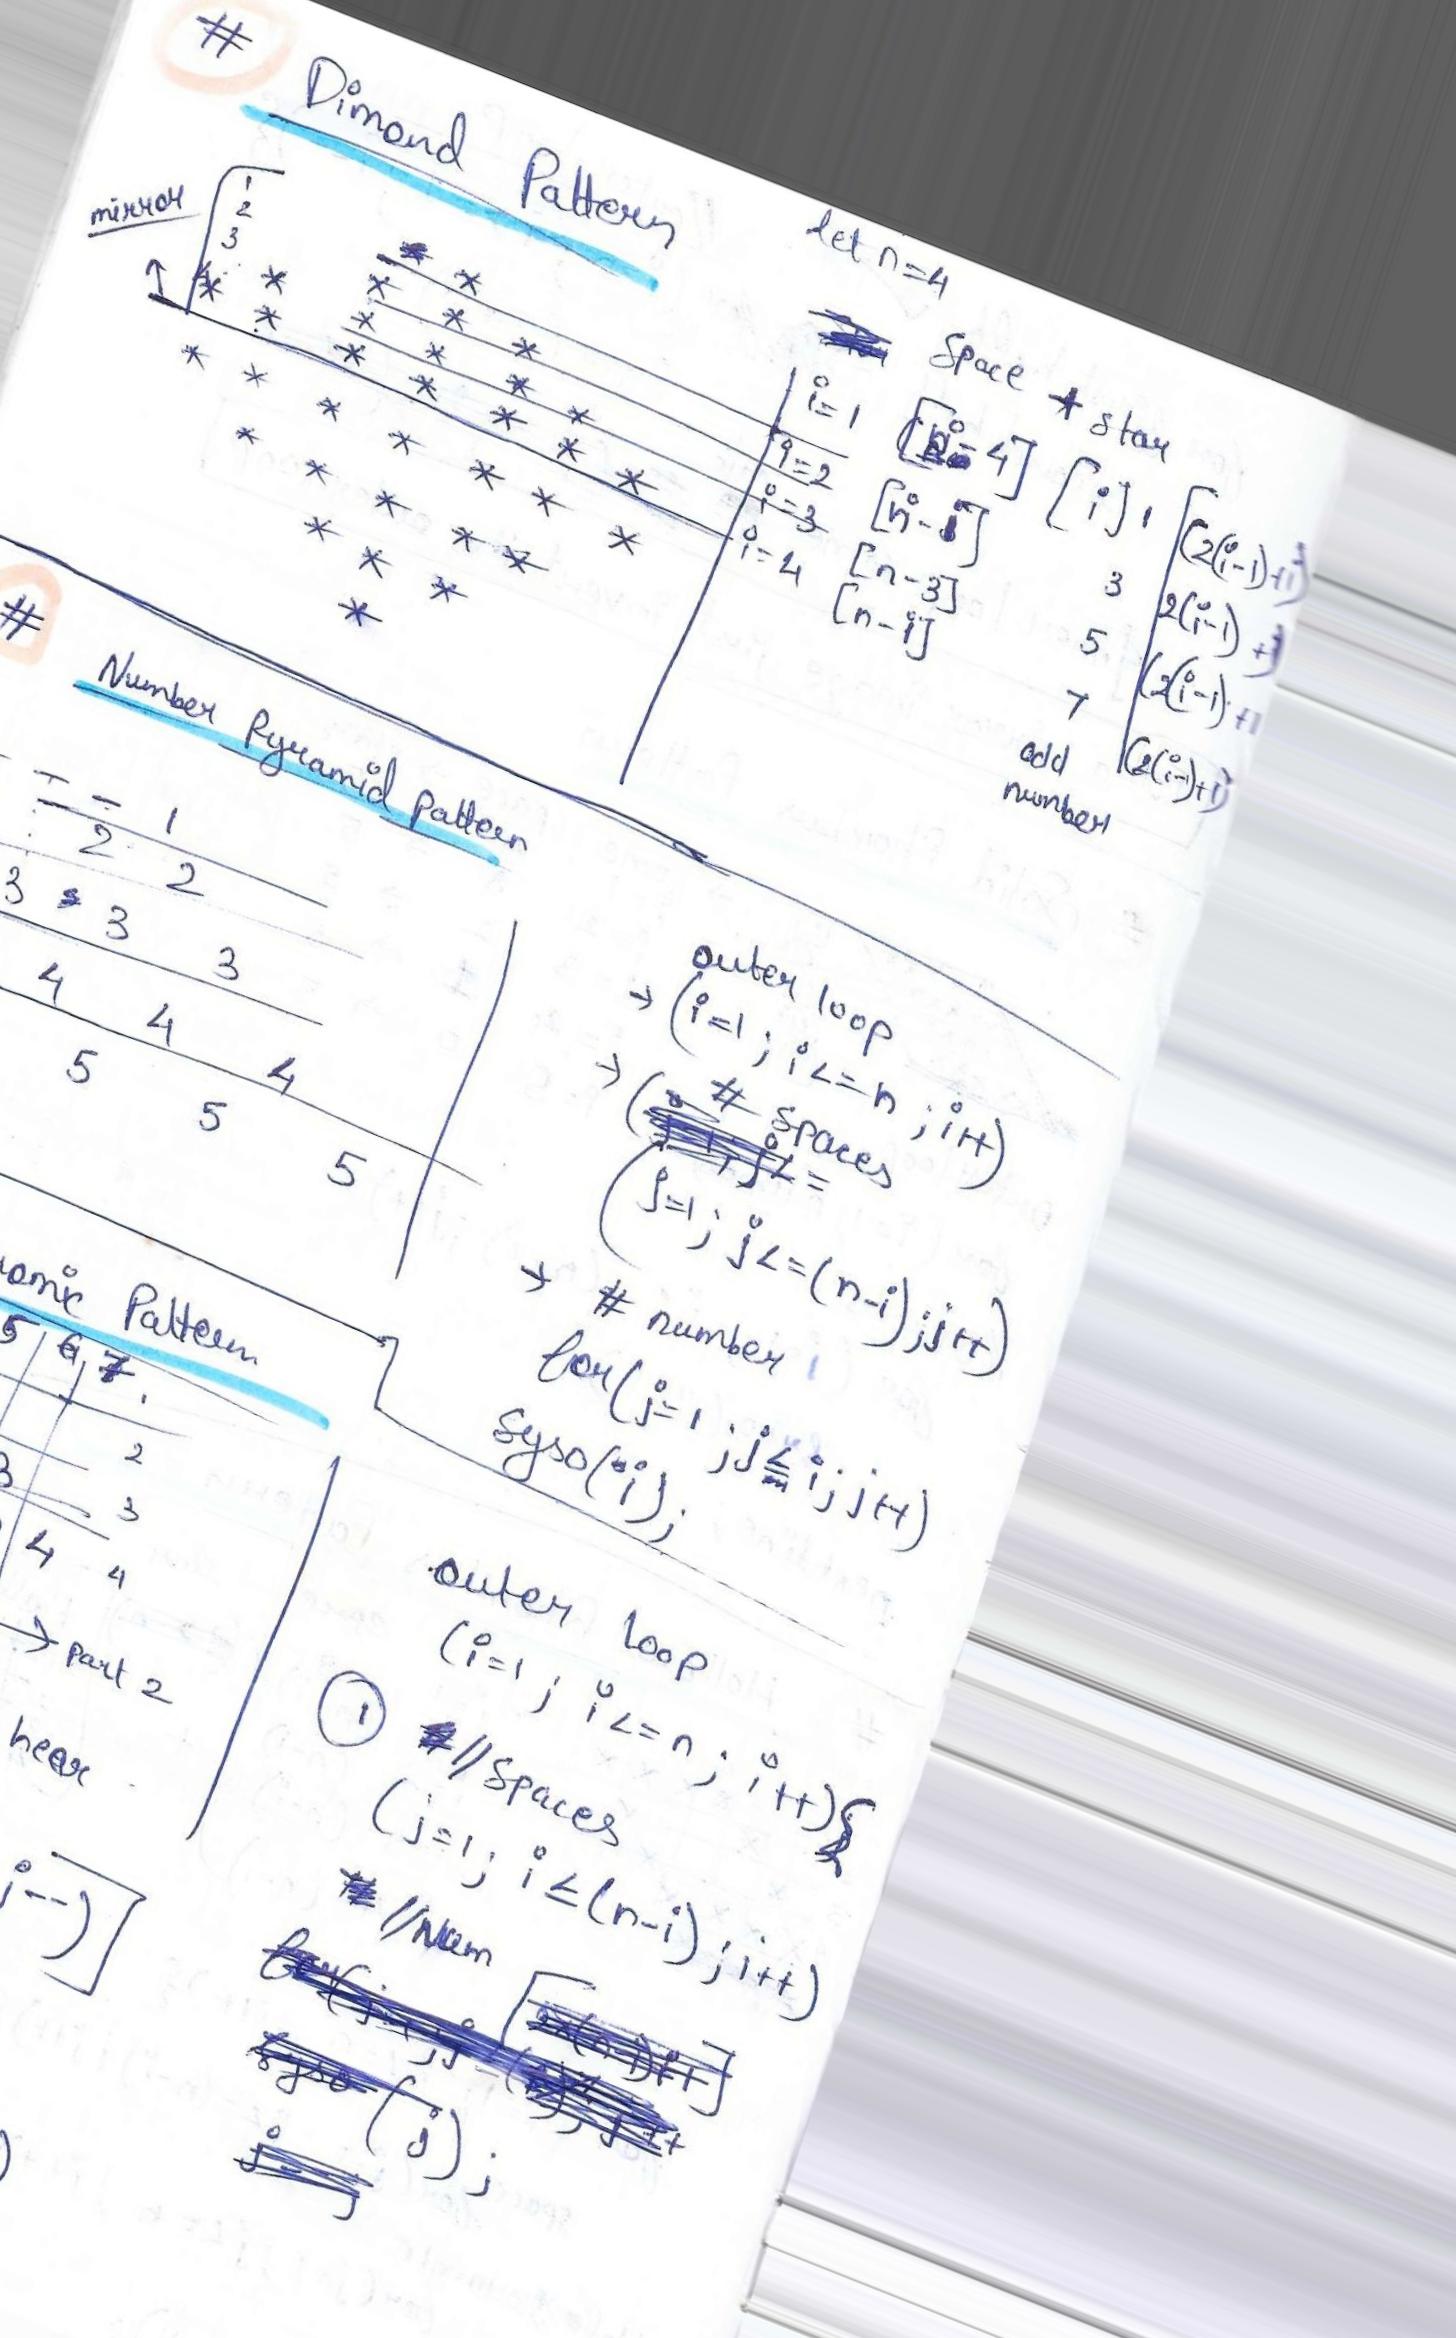 #
Dimond Pattern
let n=4
mirror
1
2
3
4
* *
* * *
* * * * *
* * * * * * *
* * * * * * *
* * * * *
* * *
*
Space + star
i=1 [n-4] [i] 1 (2(i-1)+1)
i=2 [n-i] 3 2(i-1)+1
i=3 [n-3] 5 (2(i-1)+1
i=4 [n-i] 7 (2(i-1)+1)
odd
number
#
Number Pyramid pattern
- - - 1
2 2
3 3 3
4 4 4
5 5 5
outer loop
→ (i=1; i<=n; i++)
→ # spaces
(j=1; j<=(n-i); j++)
→ # number
for(j=1; j<=i; j++)
Syso(i);
Pattern
5 6 7
2
3 3
4 4
→ part 2
hear
j--)
outer loop
(i=1; i<=n; i++){
① //Spaces
(j=1; i≤(n-i); i++)
//Num
(j);